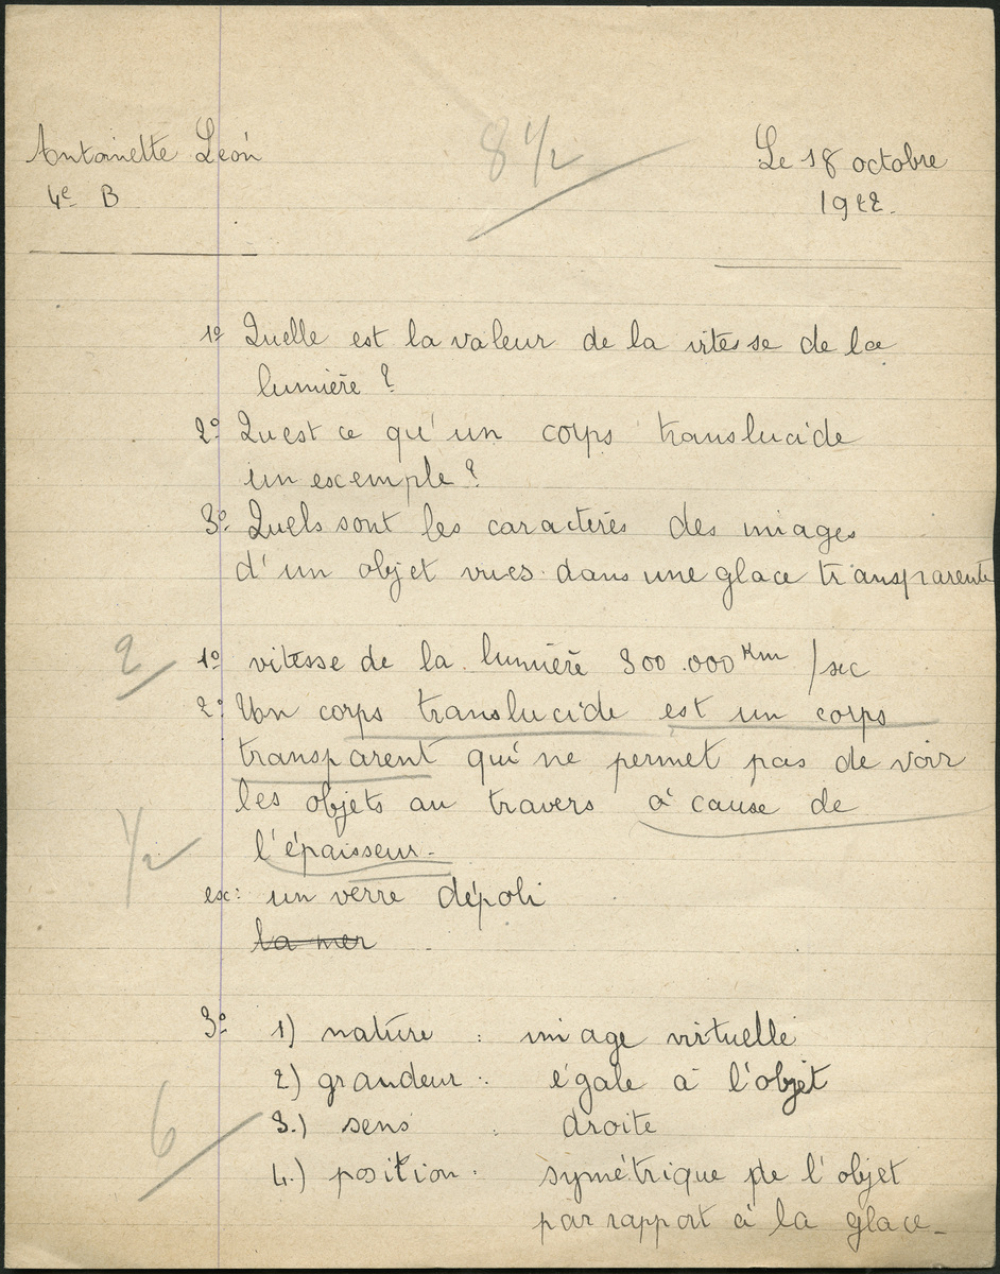 Antoinette León
8 1/2
Le 18 octobre
4e B
1922.
1º Quelle est la valeur de la vitesse de la
lumière ?
2º Qu'est ce qu'un corps translucide
un exemple ?
3º Quels sont les caractères des images
d'un objet vues dans une glace transparente
2
1º vitesse de la lumière 300.000 Km /sec
2º Un corps translucide est un corps
transparent qui ne permet pas de voir
les objets au travers à cause de
l'épaisseur.
1/2
ex: un verre dépoli
la mer
3º 1) nature : image virtuelle
2) grandeur : égale à l'objet
6
3.) sens : droite
4.) position : symétrique de l'objet
par rapport à la glace_